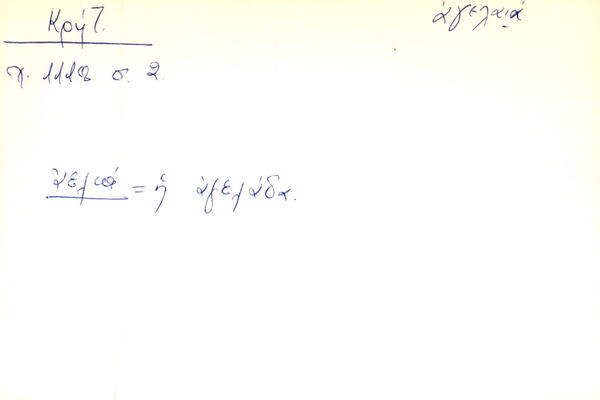 Κρήτ.
ἀγελαιά
χ. 1118 σ. 2.
ἀελιά = ἡ ἀγελάδα.